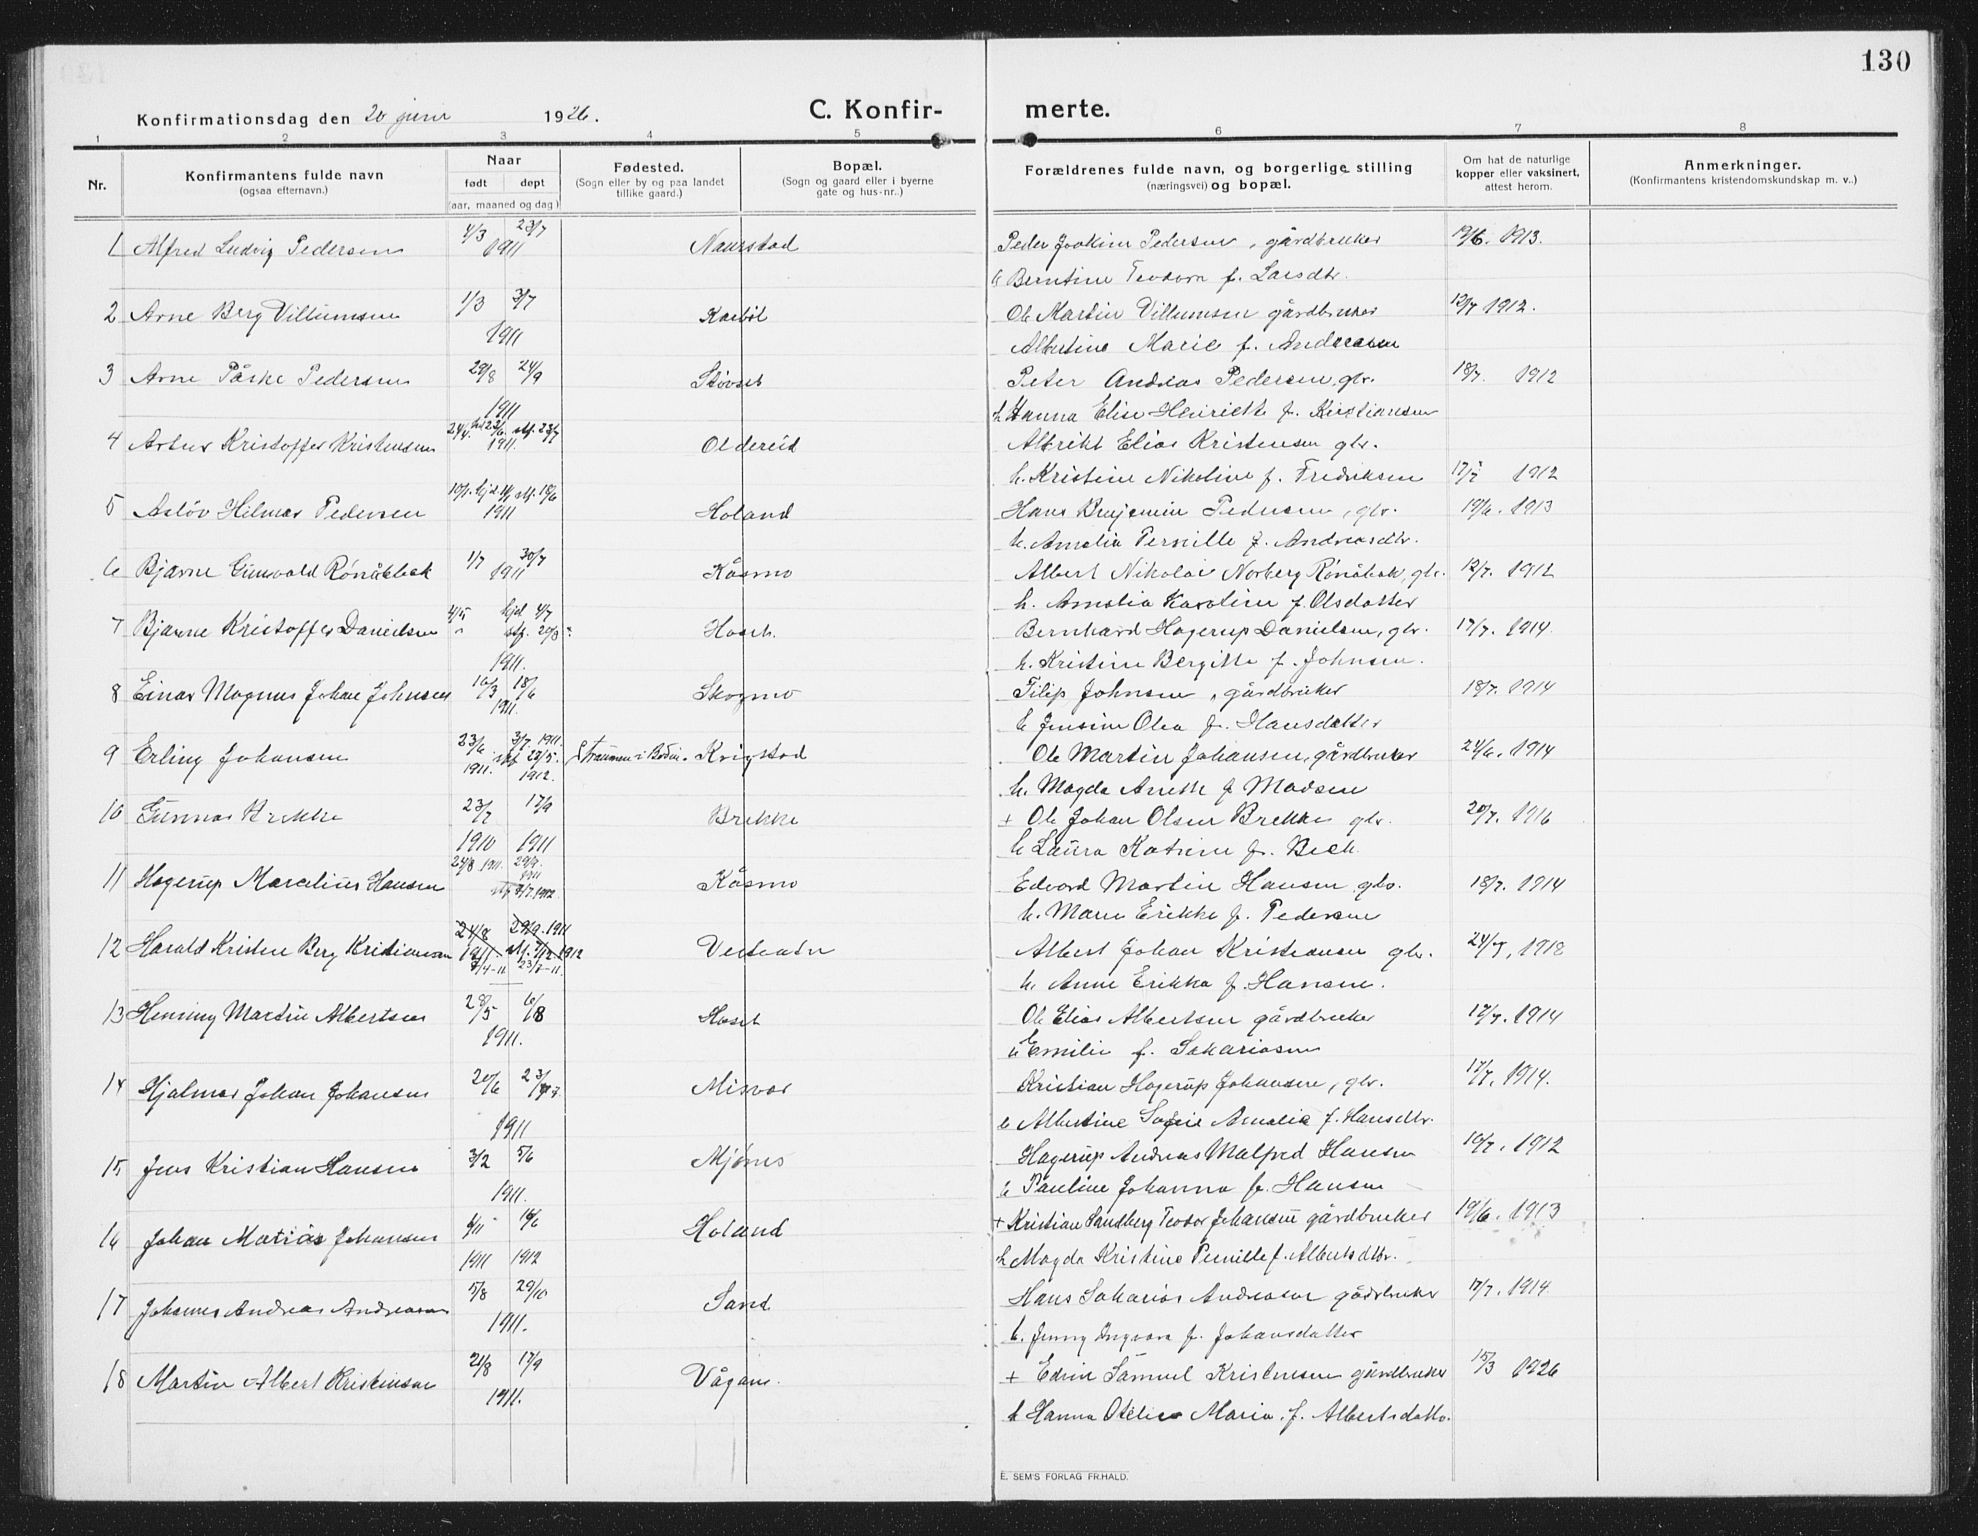 130
Konfirmationsdag den 20 juni 1926.
C. Konfir- merte.
1 2 3 4 5 6 7 8
Nr.
Konfirmantens fulde navn
(ogsaa efternavn.)
Naar
født døpt
(aar, maaned og dag)
Fødested.
(Sogn eller by og paa landet
tillike gaard.)
Bopæl.
(Sogn og gaard eller i byerne
gate og hus-nr..)
Forældrenes fulde navn, og borgerlige stilling
(næringsvei) og bopæl.
Om hat de naturlige
kopper eller vaksinert,
attest herom.
Anmerkninger.
(Konfirmantens kristendomskundskap m. v..)
1 Alfred Ludvig Pedersen 4/3 23/7 1911 Naurstad Peder Joakim Pedersen, gårdbruker 19/6. 1913.
Berntine Teodora f. Larsdtr.
2 Arne Berg Villumsen 1/3 3/7 1911 Karbøl Ole Martin Villumsen gårdbruker 12/7 1912.
Albertine Marie f. Andersen
3 Arne Påske Pedersen 29/8 24/9 1911 Støvset Peter Andreas Pedersen, gbr. 18/7. 1912
h. Hanna Elise Henrikke f. Kristiansen
4 Artur Kristoffer Kristensen 1911. stf. 23/7 Oldereid Albrikt Elias Kristensen gbr.
h. Kristine Nikoline f. Fredriksen 17/7 1912
5 Asløv Hilmar Pedersen stf. 18/6 1911 Holand Hans Benjamin Pedersen, gbr. 19/6. 1913
h. Amalia Pernille f. Andreasdtr.
6 Bjarne Gunvald Rønåbbak 1/7 30/7 1911 Kåsmo Albert Nikolai Norberg Rønåbak, gbr. 12/7. 1912
h. Amalia Karoline f. Olsdatter
7 Bjarne Kristoffer Danielsen 4/5 hjd 4/7 stf. 20/8 1911. Hoset. Bernhard Hagerup Danielsen, gbr. 17/7. 1914.
h. Kristine Bergitte f. Johnsen.
8 Einar Magnus Johan Johnsen 16/3 18/6 1911. Skogmo Filip Johnsen, gårdbruker 18/7. 1914
h Jensine Olea f. Hansdatter
9 Erling Johansen 23/6 1911. 3/7 1911. stf 29/5 1912. Straumen i Bodin. Krigstad Ole Martin Johansen, gårdbruker 24/6. 1914
h. Magda Anette f Madsen
10 Gunnar Brekke 23/7 1910 17/9 1911 Brekke + Ole Johan Olsen Brekke gbr. 20/7. 1916
h Laura Katrine f. Bech.
11 Hagerup Marelius Hansen 24/8 1911. 29/9. 1911 stf 2/7 1912. Kåsmo Edvard Martin Hansen, gbr. 18/7. 1914
h. Maren Erikke f. Pedersen
12 Harald Kristen Berg Kristiansen 24/8 1911 29/9. 1911 stf. 7/12 1912 7/4-11 23/7-11. Vesteatn Albert Johan Kristiansen gbr. 24/7. 1918
h. Anne Erikka f. Hansen.
13 Henning Martin Albertsen 28/5 6/8 1911. Hoset Ole Elias Albertsen gårdbruker 17/7. 1914
h Emilie f. Sakariasen
14 Hjalmar Johan Johansen 20/6 23/7 1911 Misvær Kristian Hagerup Johansen, gbr. 17/7. 1914.
h Albertine Sofie Amalia f. Hansdtr.
15 Jens Kristian Hansen 3/2 5/6 1911. Mjønes Hagerup Andreas Malfred Hansen 10/7. 1912
h Pauline Johanna f. Hansen
16 Johan Matias Johansen 6/11 1911 16/6 1912 Holand + Kristian Sandberg Teodor Johansen gårdbruker 19/6. 1913
h Magda Kristine Pernille f. Albertsdtr.
17 Johannes Andreas Andreasen 5/8 29/10 1911. Sand Hans Sakarias Andreasen gårdbruker 17/7. 1914
h. Jenny Ingvara f. Johansdatter
18 Martin Albert Kristensen 21/8 17/9 1911. Vågan. + Edvin Samuel Kristensen gårdbruker 15/3 1926
h Hanna Otelie Maria. f. Albertsdatter.
E. SEM'S FORLAG FR.HALD.